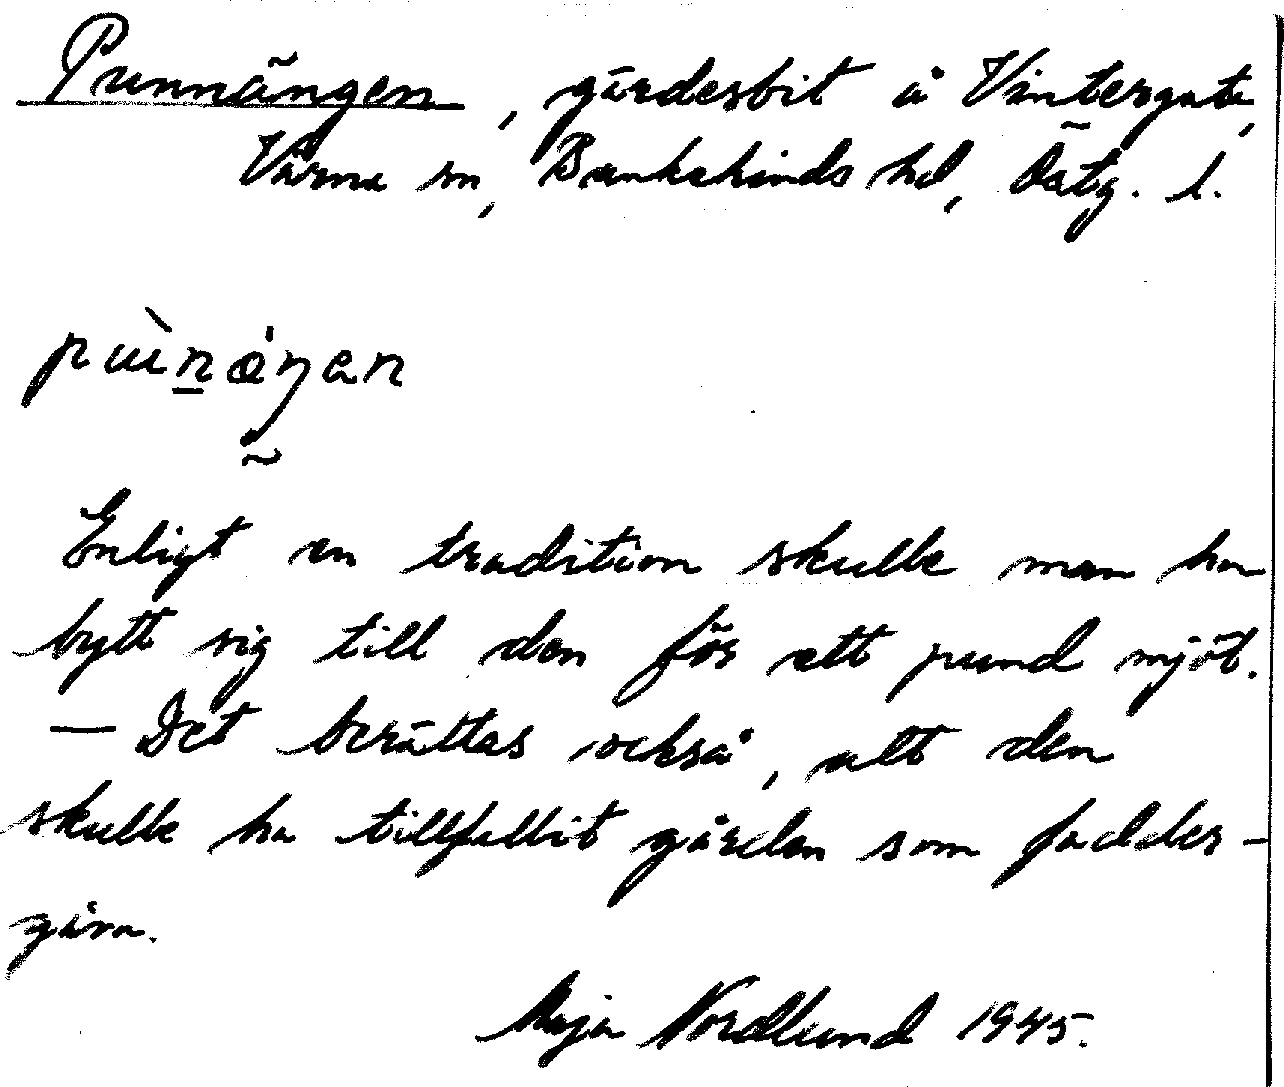 Punnängen, gärdesbit å Vintergata,
Värna sn, Bankekinds hd, Östg. l.
Enligt en tradition skulle man ha
bytt sig till den för ett pund mjöl.
— Det berättas också, att den
skulle ha tillfallit gården som fadder-
gåva.
Maja Nordlund 1945.